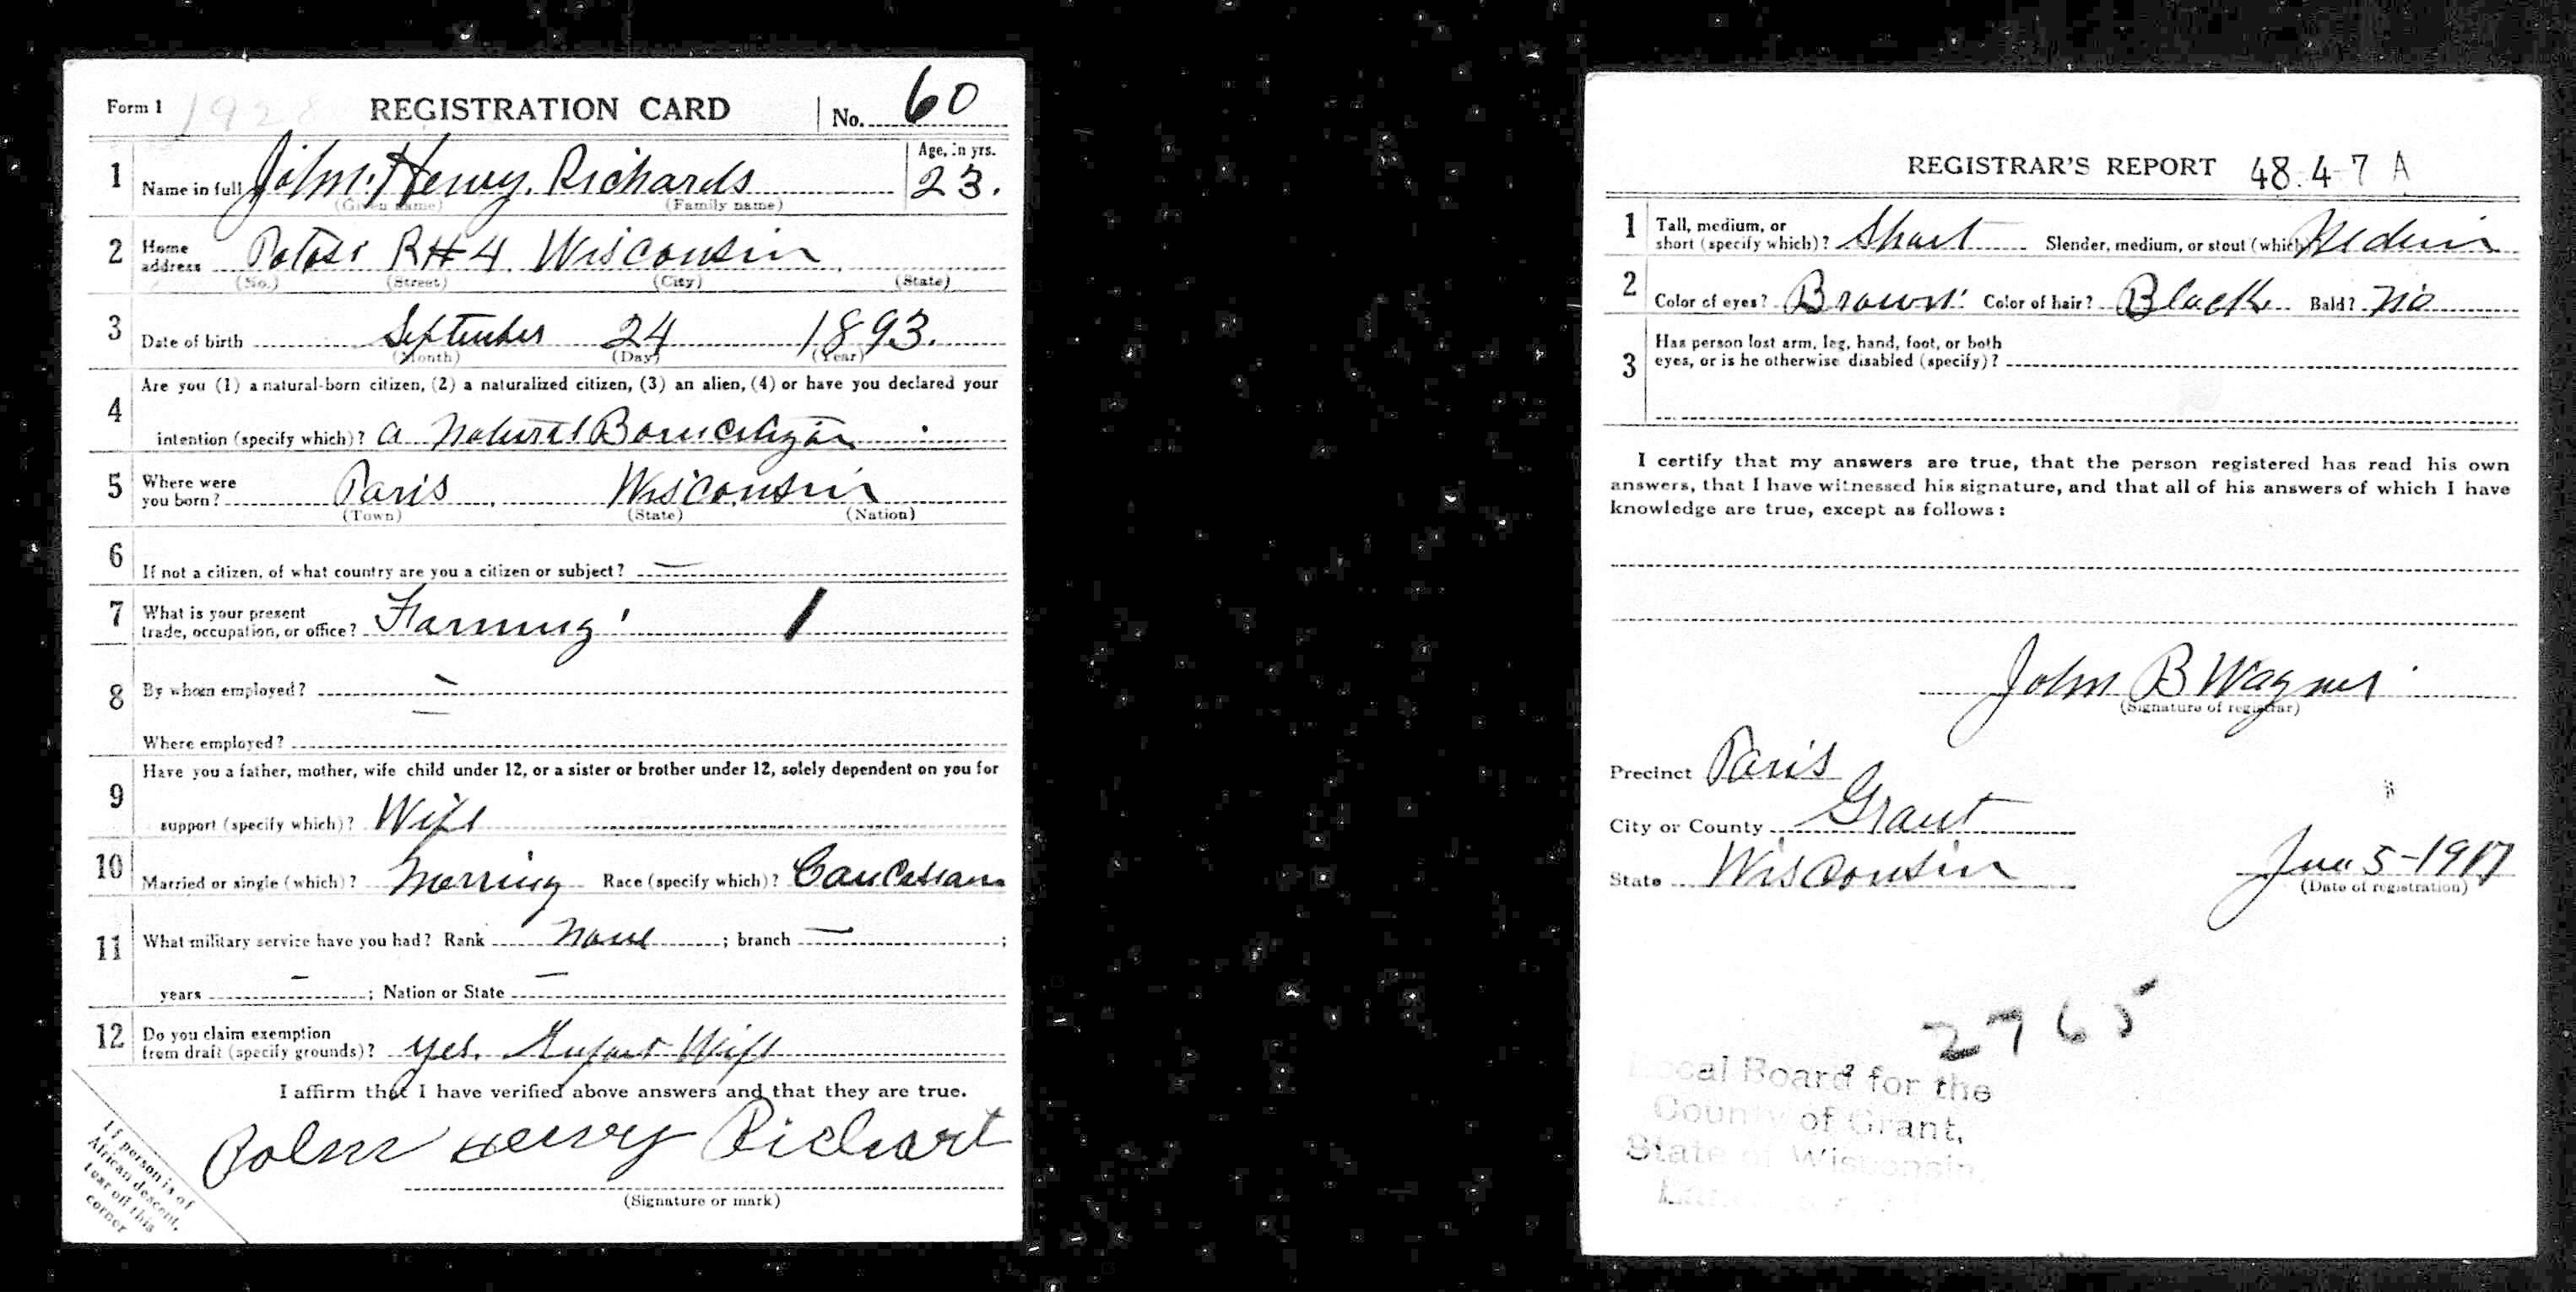 Form 1 1928 REGISTRATION CARD No. 60
1 Name in full John Henry Richards Age, in yrs. 23.
(Given name) (Family name)
2 Home address Potosi R#4 Wisconsin
(No.) (Street) (City) (State)
3 Date of birth September 24 1893.
(Month) (Day) (Year)
Are you (1) a natural-born citizen, (2) a naturalized citizen, (3) an alien, (4) or have you declared your
4 intention (specify which)? a Natural Born citizen
5 Where were you born? Paris, Wisconsin
(Town) (State) (Nation)
6 If not a citizen, of what country are you a citizen or subject? —
7 What is your present trade, occupation, or office? Farming
8 By whom employed? —
Where employed?
Have you a father, mother, wife child under 12, or a sister or brother under 12, solely dependent on you for
9 support (specify which)? Wife
10 Married or single (which)? Race (specify which)? Caucasian
11 What military service have you had? Rank None ; branch — ;
years — ; Nation or State —
12 Do you claim exemption from draft (specify grounds)? yes. Wife
I affirm that I have verified above answers and that they are true.
John Henry Richart
(Signature or mark)
If person is of
African descent,
tear off this
corner
REGISTRAR'S REPORT 48-4-7 A
1 Tall, medium, or short (specify which)? Short Slender, medium, or stout (which)? Medium
2 Color of eyes? Brown Color of hair? Black Bald? No
3 Has person lost arm, leg, hand, foot, or both
eyes, or is he otherwise disabled (specify)?
I certify that my answers are true, that the person registered has read his own
answers, that I have witnessed his signature, and that all of his answers of which I have
knowledge are true, except as follows:
John B Wagner
(Signature of registrar)
Precinct Paris
City or County Grant
State Wisconsin June 5-1917
(Date of registration)
2765
Local Board for the
County of Grant,
State of Wisconsin,